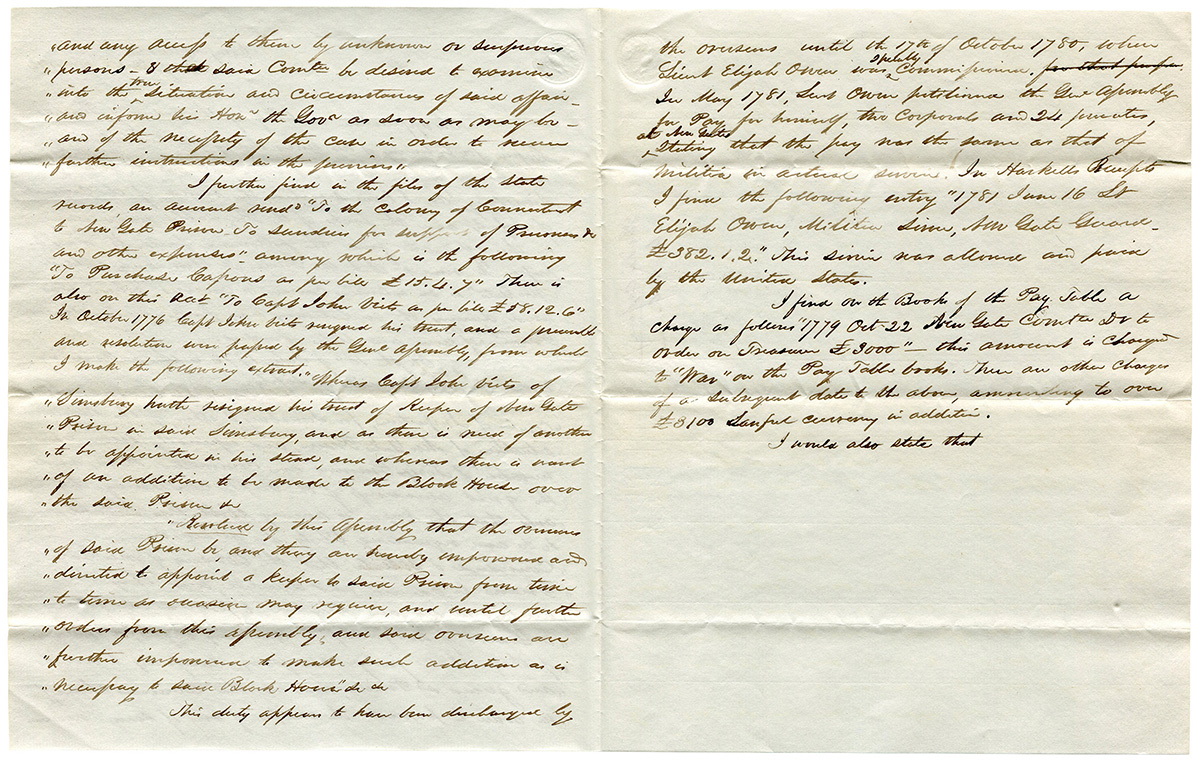 "and any access to them by unknown or suspicious
"persons – & that said Comtee be desired to examine
"into the true situation and circumstances of said affair –
"and inform his Honr the Govr as soon as may be –
"and of the necessity of the case in order to receive
"further instructions in the premises"
I further find in the files of the State
records, an account rendd "To the Colony of Connecticut
to New Gate Prison To sundries for support of Prisoners &c
and other expenses" among which is the following
"To Purchase Capons as per bill £15.4.7" There is
also on this acct "To Capt John Viets as per bill £58.12.6"
In October 1776 Capt John Viets resigned his trust, and a preamble
and resolution were passed by the Genl Assembly, from which
I make the following extract. "Whereas Capt John Viets of
"Simsbury hath resigned his trust of Keeper of New Gate
"Prison in said Simsbury, and as there is need of another
"to be appointed in his stead, and whereas there is want
"of an addition to be made to the Block House over
"the said Prison &c
"Resolved by this Assembly that the overseers
"of said Prison be, and they are hereby impowered and
"directed to appoint a keeper to said Prison from time
"to time as occasion may require, and until further
"orders from this assembly, and said overseers are
"further impowered to make such addition as is
"necessary to said Block House" &c &c
This duty appears to have been discharged by
the overseers until the 17th of October 1780, when
Lieut Elijah Owen was specially Commissioned. for that
In May 1781, Lieut Owen petitioned the Genl Assembly
for Pay for himself, two Corporals and 24 privates,
at New Gate, Stating that the pay was the same as that of
militia in actual service. In Haskells Receipts
I find the following entry "1781 June 16 Lt
Elijah Owen, Militia Serve, New Gate Guard –
£382.1.2." This service was allowed and paid
by the United States.
I find on the Books of the Pay Table a
charge as follows "1779 Oct 22 New Gate Comtee Dr to
order on Treasurer £3000" – this amount is charged
to "War" on the Pay Table books. There are other charges
of a subsequent date to the above, amounting to over
£3100 Lawful currency in addition.
I would also state that